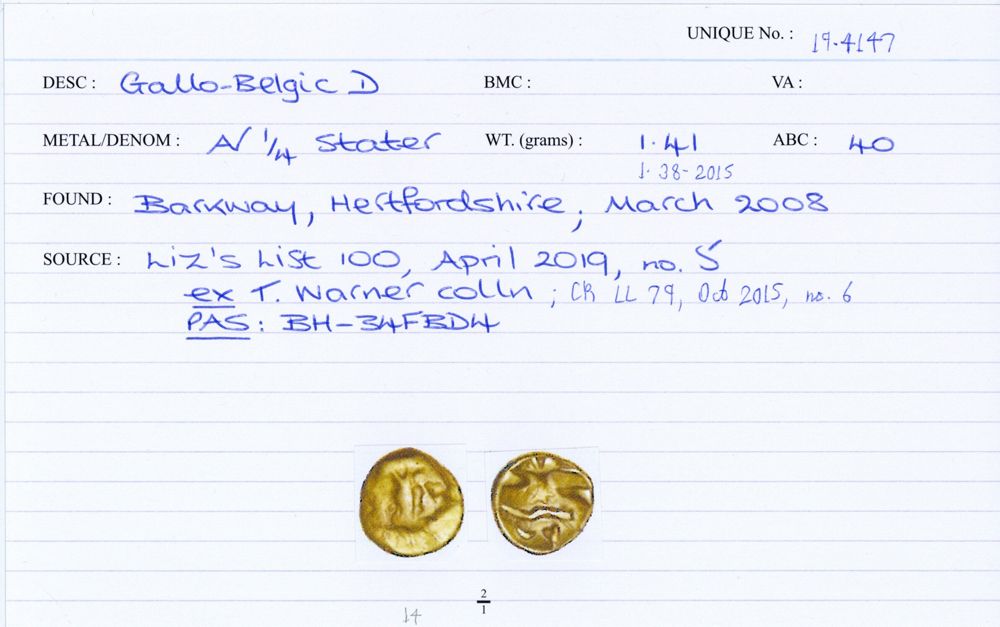 UNIQUE No. : 19.4147
DESC : Gallo-Belgic D BMC : VA :
METAL/DENOM : AV 1/4 Stater WT. (grams) : 1.41 ABC : 40
1.38-2015
FOUND : Barkway, Hertfordshire, March 2008
SOURCE : Liz's List 100, April 2019, no. 5
ex T. Warner colln ; CR LL 79, Oct 2015, no. 6
PAS : BH-34FBD4
2
1
14